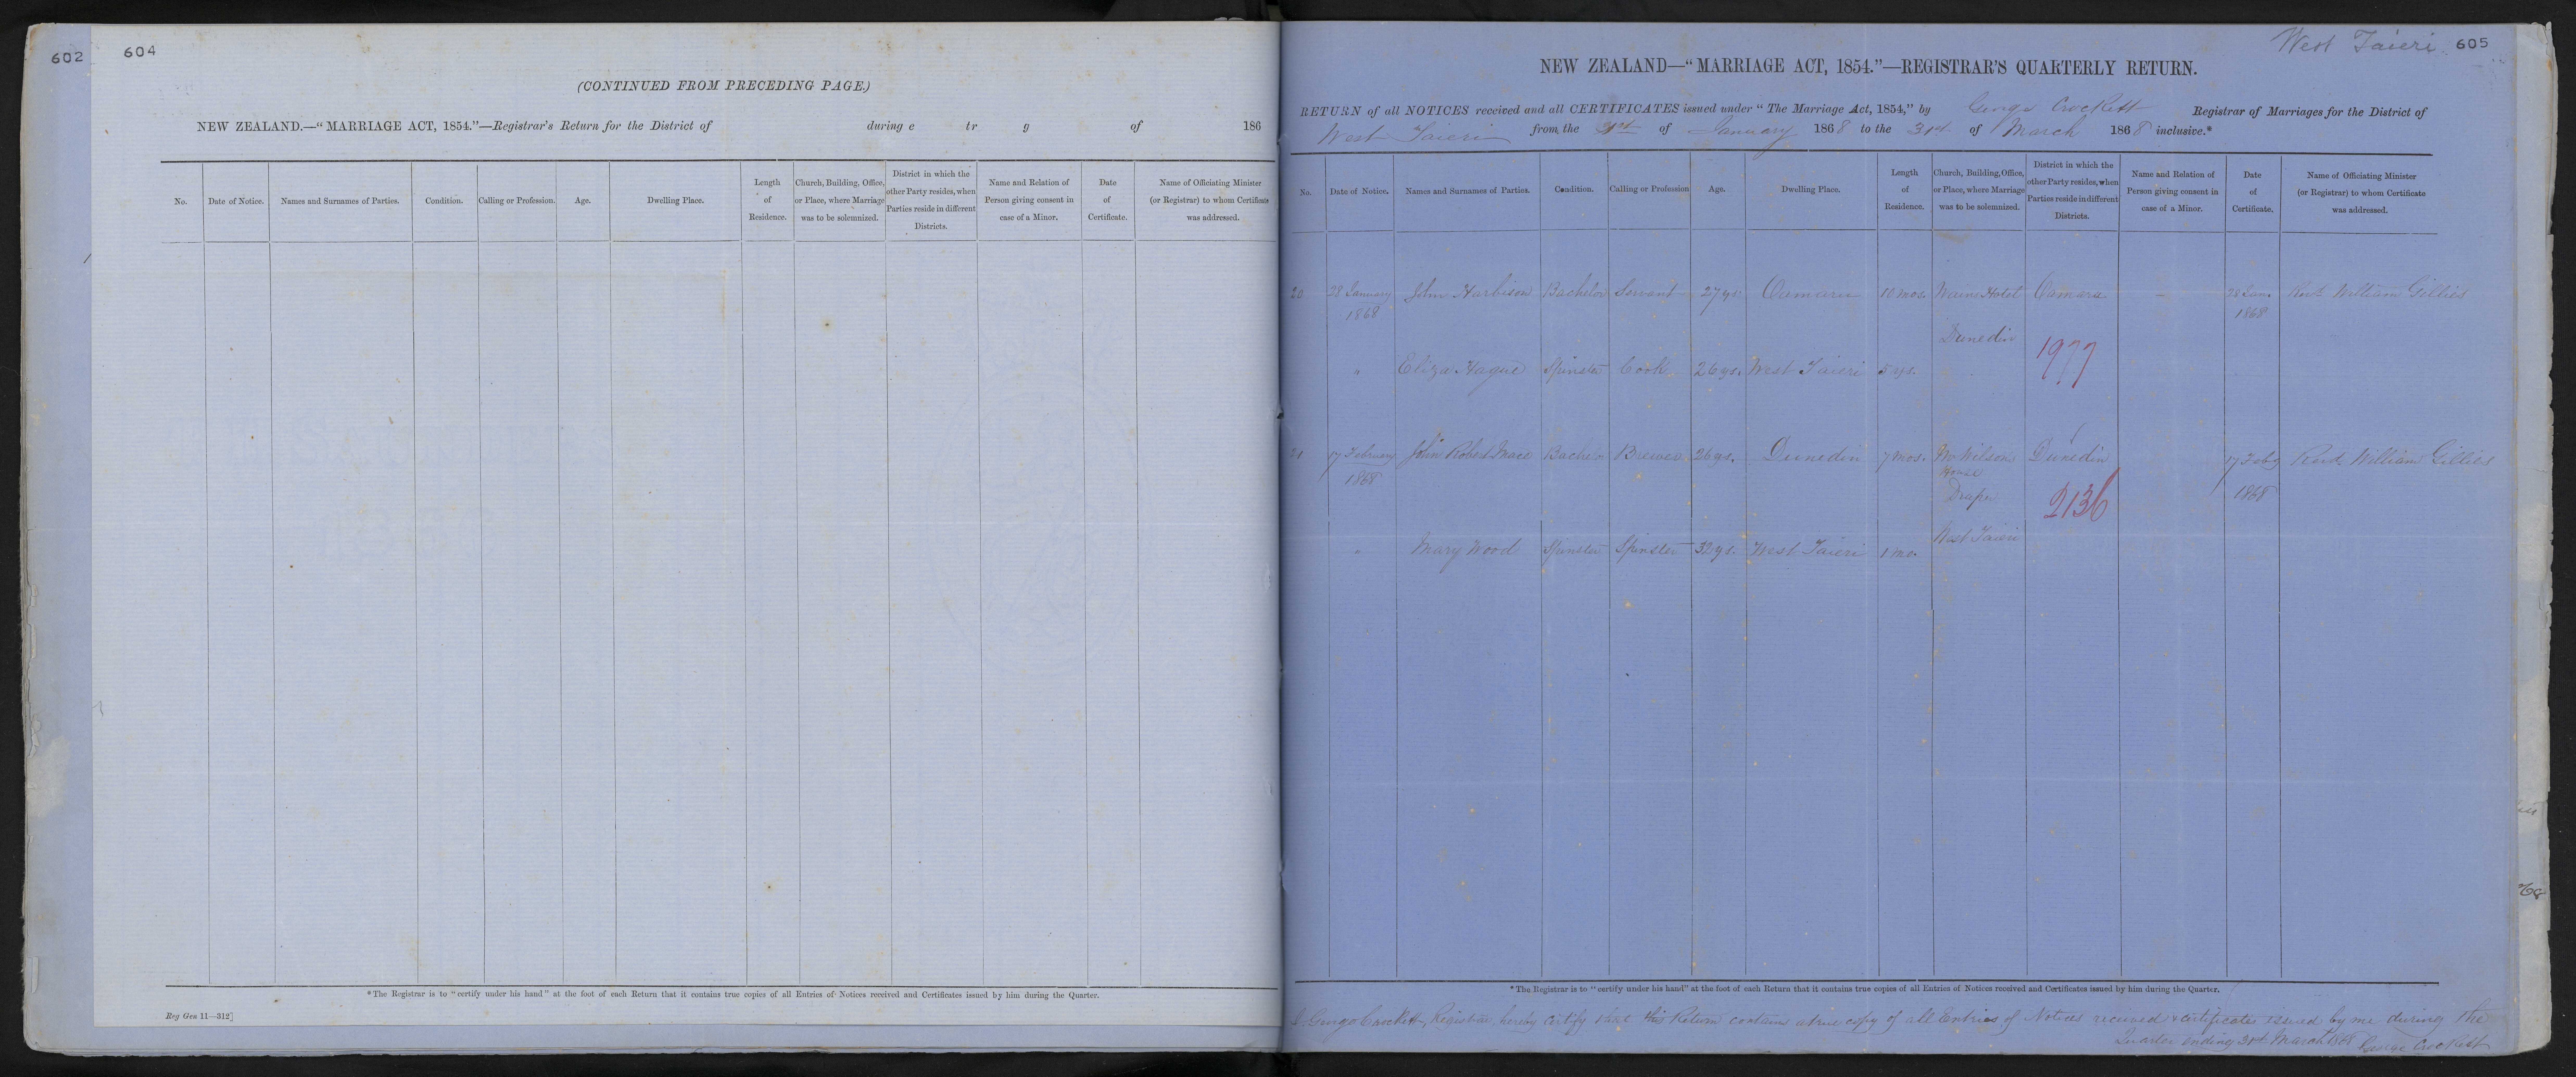 602
604
(CONTINUED FROM PRECEDING PAGE.)
NEW ZEALAND.—"MARRIAGE ACT, 1854."—Registrar's Return for the District of during e tr g of 186
No. Date of Notice. Names and Surnames of Parties. Condition. Calling or Profession. Age. Dwelling Place. Length of Residence. Church, Building, Office, or Place, where Marriage was to be solemnized. District in which the other Party resides, when Parties reside in different Districts. Name and Relation of Person giving consent in case of a Minor. Date of Certificate. Name of Officiating Minister (or Registrar) to whom Certificate was addressed.
*The Registrar is to "certify under his hand" at the foot of each Return that it contains true copies of all Entries of Notices received and Certificates issued by him during the Quarter.
Reg Gen 11—312]
West Taieri 605
NEW ZEALAND—"MARRIAGE ACT, 1854."—REGISTRAR'S QUARTERLY RETURN.
RETURN of all NOTICES received and all CERTIFICATES issued under "The Marriage Act, 1854," by George Crockett Registrar of Marriages for the District of
West Taieri from the 1st of January 1868 to the 31st of March 1868 inclusive.*
No. Date of Notice. Names and Surnames of Parties. Condition. Calling or Profession Age. Dwelling Place. Length of Residence. Church, Building, Office, or Place, where Marriage was to be solemnized. District in which the other Party resides, when Parties reside in different Districts. Name and Relation of Person giving consent in case of a Minor. Date of Certificate. Name of Officiating Minister (or Registrar) to whom Certificate was addressed.
20 28 January John Harbison Bachelor Servant 27 ys. Oamaru 10 mos. Wains Hotel Oamaru – 28 Jan. Revd. William Gillies
1868 1868
Dunedin 1977
" Eliza Hague Spinster Cook 26 ys. West Taieri 5 ys.
21 17 February John Robert Mace Bachelor Brewer 26 ys. Dunedin 7 mos. Mr Wilsons Dunedin 17 Feby Revd. William Gillies
1868 House
Draper 2136 1868
" Mary Wood Spinster Spinster 32 ys. West Taieri 1 mo. West Taieri
*The Registrar is to "certify under his hand" at the foot of each Return that it contains true copies of all Entries of Notices received and Certificates issued by him during the Quarter.
I George Crockett, Registrar hereby certify that this Return contains a true copy of all Entries of Notices received & certificates issued by me during the
Quarter ending 31st March 1868 George Crockett